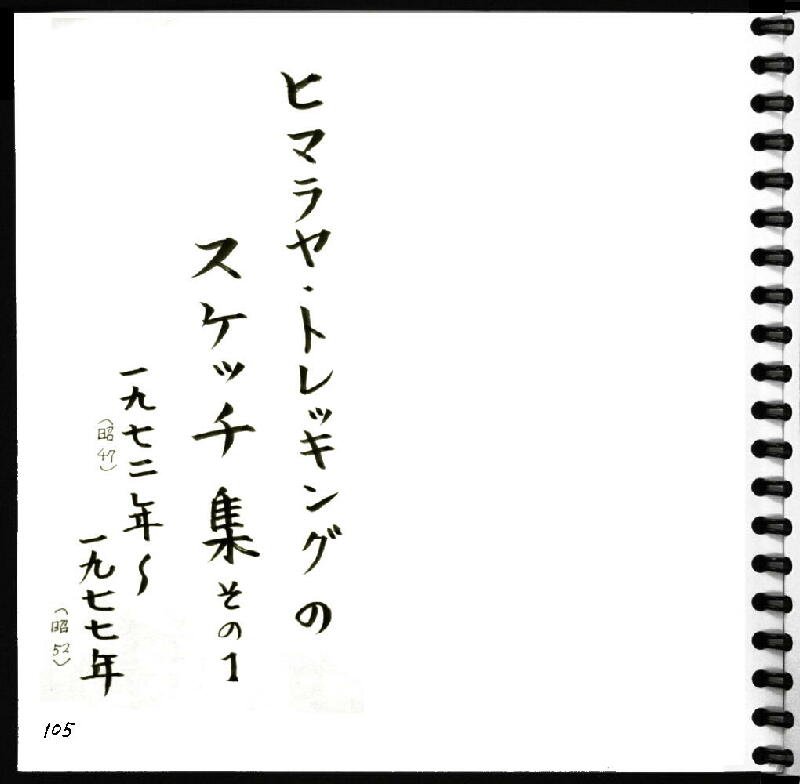 ヒマラヤ・トレッキングの
スケッチ集その1
一九七二年~
(昭47)
一九七七年
(昭52)
105